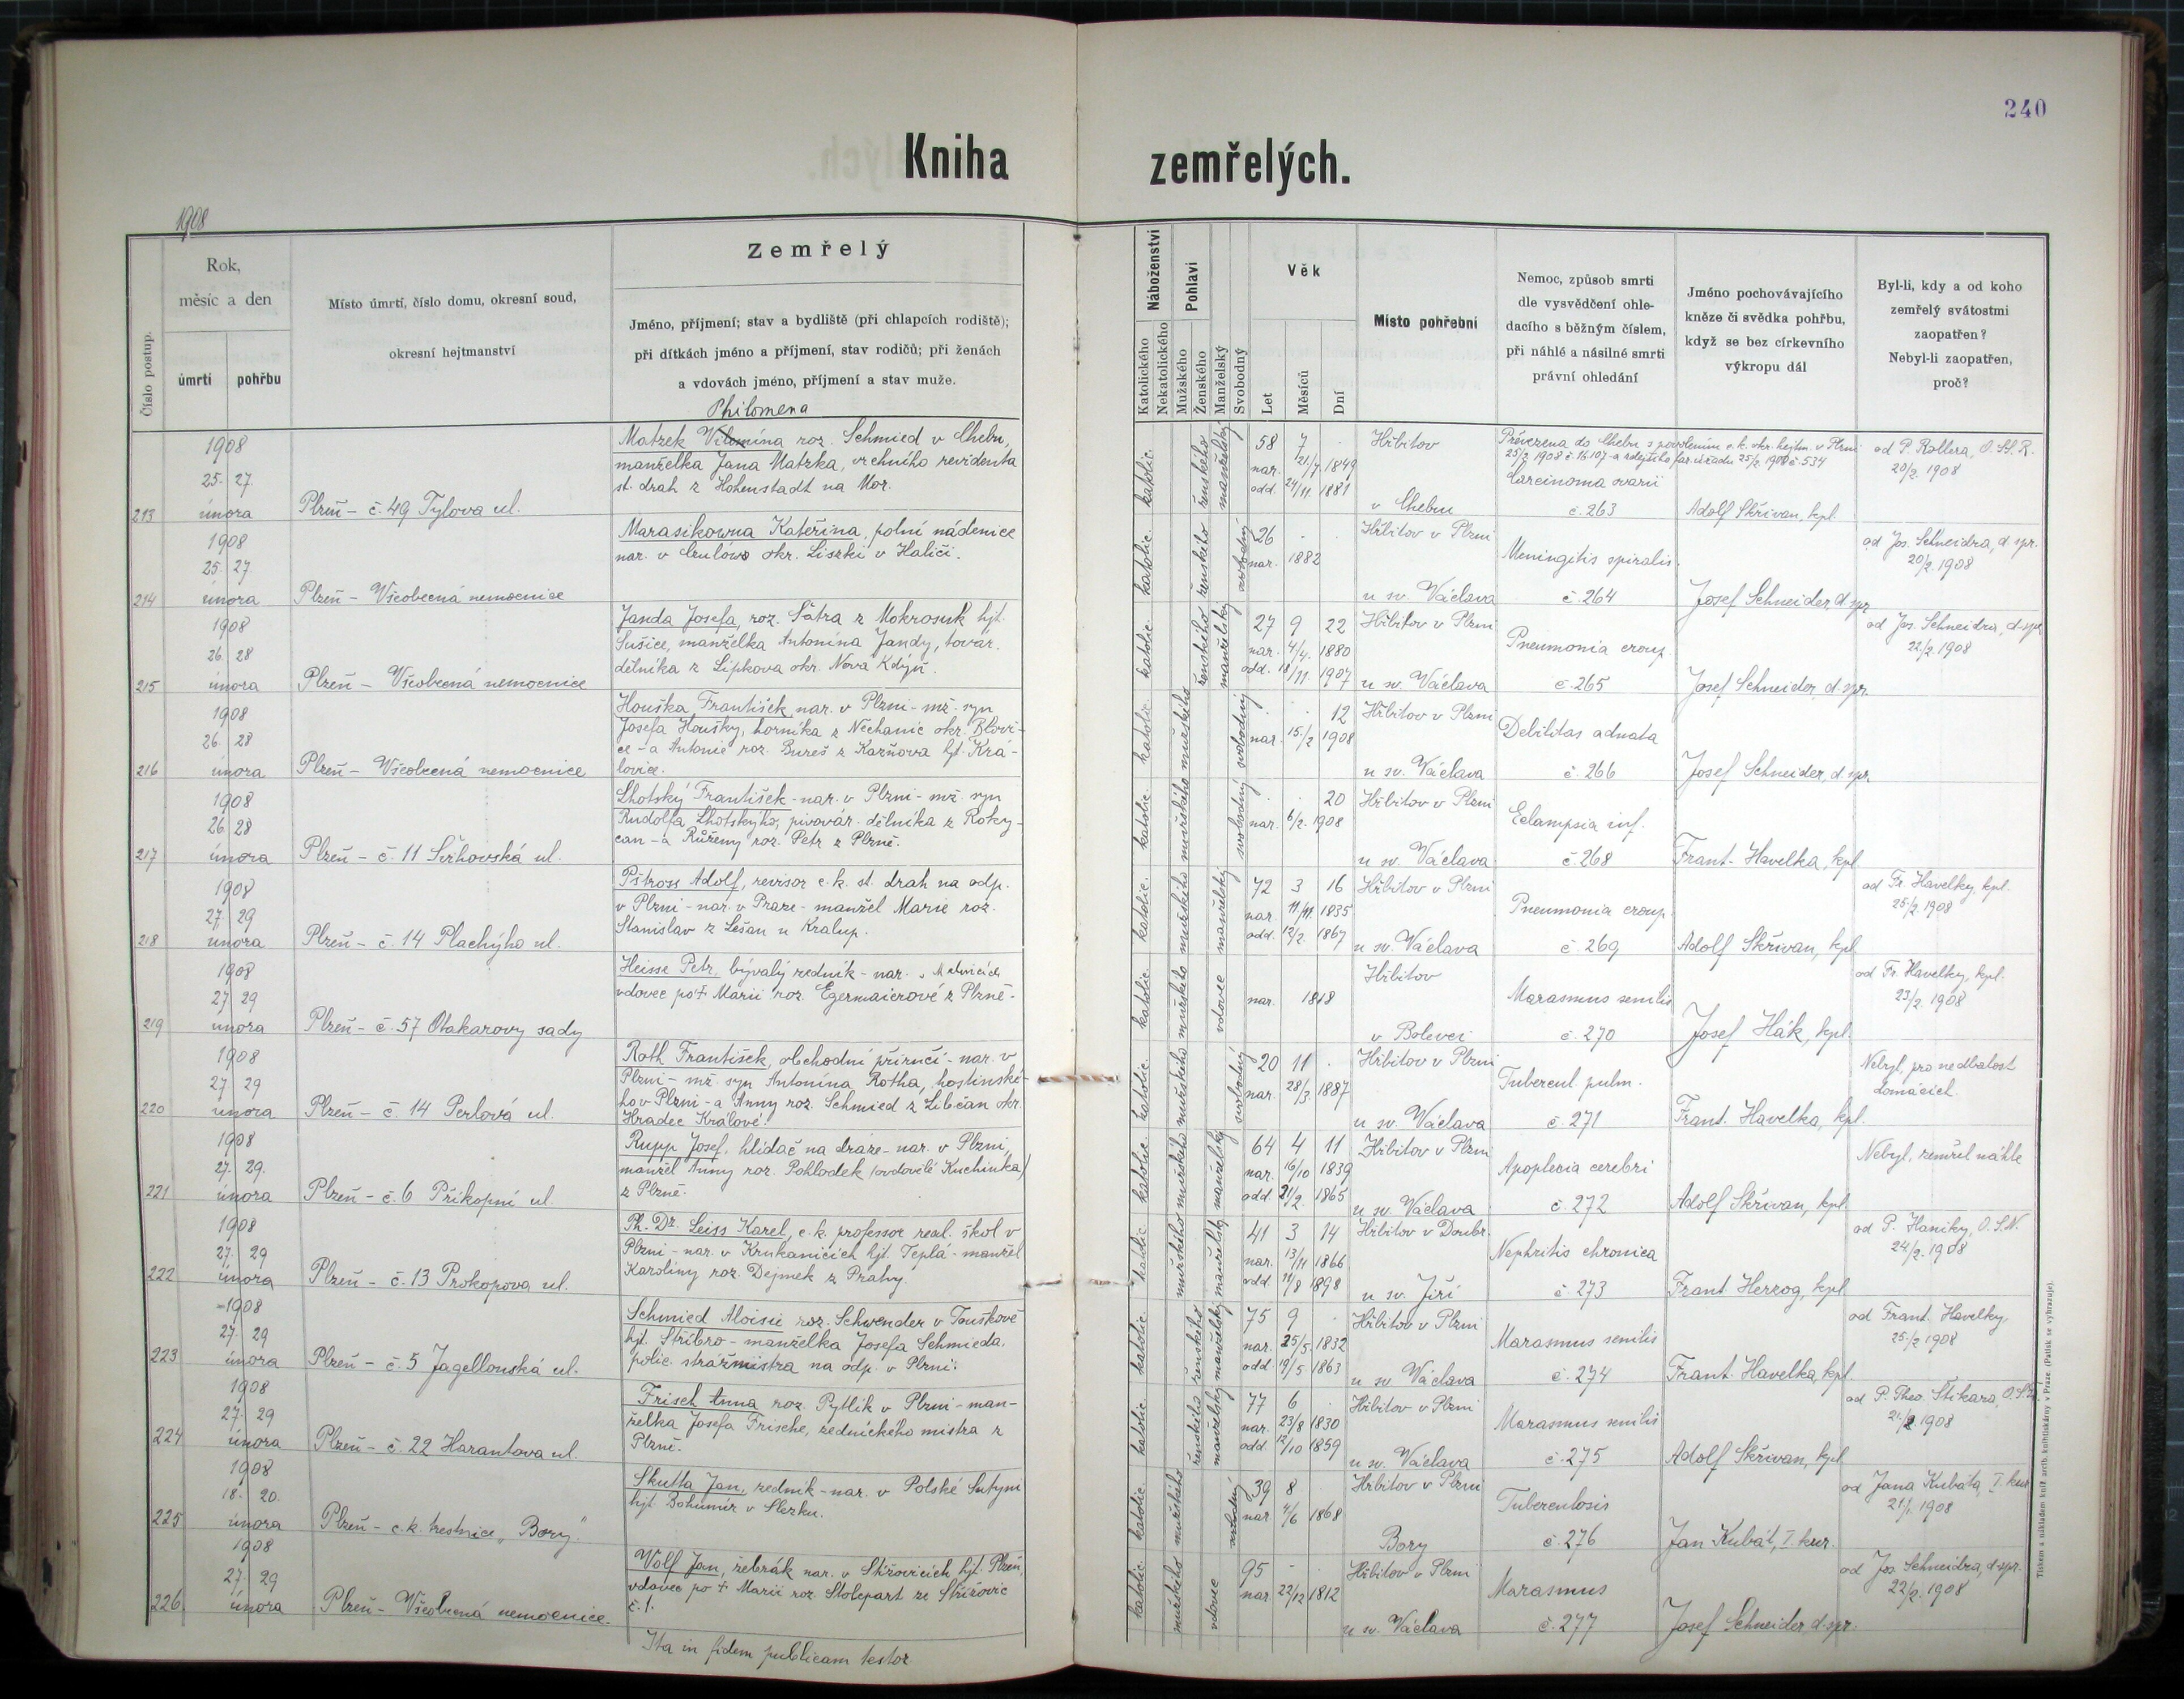 240
Kniha zemřelých.
1908
Číslo postup.
Rok,
měsíc a den
úmrtí
pohřbu
Místo úmrtí, číslo domu, okresní soud,
okresní hejtmanství
Zemřelý
Jméno, příjmení; stav a bydliště (při chlapcích rodiště);
při dítkách jméno a příjmení, stav rodičů; při ženách
a vdovách jméno, příjmení a stav muže.
Náboženství
Katolického
Nekatolického
Pohlaví
Mužského
Ženského
Manželský
Svobodný
Věk
Let
Měsíců
Dní
Místo pohřební
Nemoc, způsob smrti
dle vysvědčení ohle-
dacího s běžným číslem,
při náhlé a násilné smrti
právní ohledání
Jméno pochovávajícího
kněze či svědka pohřbu,
když se bez církevního
výkropu dál
Byl-li, kdy a od koho
zemřelý svátostmi
zaopatřen?
Nebyl-li zaopatřen,
proč?
213
1908
25. 27.
února
Plzeň - č. 49 Tylova ul.
Philomena
Matzek Vilemína roz. Schmied v Chebu,
manželka Jana Matzka, vrchního revidenta
st. drah z Hohenstadt na Mor.
katolic. ženského manželský
58 7 .
nar. 21/7 1849
odd. 24/11 1881
Hřbitov
v Chebu
Převezena do Chebu s povolením c.k. okr. hejtm. v Plzni
25/2 1908 č. 16107 a zdejšího far. úřadu 25/2 1908 č. 534
Carcinoma ovarii
č. 263
Adolf Skřivan, kpl.
od P. Rollera, O. Sl. R.
20/2 1908
214
1908
25. 27
února
Plzeň - Všeobecná nemocnice
Marasikowna Kateřina, polní nádenice
nar. v Czulówo okr. Liszki v Haliči.
katolic. ženského svobodný
26 . .
nar. 1882
Hřbitov v Plzni
u sv. Václava
Meningitis spiralis.
č. 264
Josef Schneider, d. spr.
od Jos. Schneidra, d. spr.
20/2. 1908
215
1908
26. 28
února
Plzeň - Všeobecná nemocnice
Janda Josefa, roz. Šátra z Mokrosuk hjt.
Sušice, manželka Antonína Jandy, továr.
dělníka z Lipkova okr. Nová Kdyň.
katolic. ženského manželský
27 9 22
nar. 4/4. 1880
odd. 18/11. 1907
Hřbitov v Plzni
u sv. Václava
Pneumonia croup.
č. 265
Josef Schneider, d. spr.
od Jos. Schneidra, d. spr.
22/2. 1908
216
1908
26. 28
února
Plzeň - Všeobecná nemocnice
Houška František nar. v Plzni - mž. syn
Josefa Houšky, horníka z Nechanic okr. Blovi-
ce - a Antonie roz. Bureš z Kazňova hjt. Kra-
lovice.
katolic. mužského svobodný
. . 12
nar. 15/2 1908
Hřbitov v Plzni
u sv. Václava
Debilitas adnata
č. 266
Josef Schneider, d. spr.
217
1908
26. 28
února
Plzeň - č. 11 Siřhovská ul.
Lhotský František - nar. v Plzni - mž. syn
Rudolfa Lhotskýho, pivovár. dělníka z Roky-
can - a Růženy roz. Petr z Plzně.
katolic. mužského svobodný
. . 20
nar. 6/2. 1908
Hřbitov v Plzni
u sv. Václava
Eclampsia inf.
č. 268
Frant. Havelka, kpl.
218
1908
27. 29
února
Plzeň - č. 14 Plachýho ul.
Pštross Adolf, revisor c.k. st. drah na odp.
v Plzni - nar. v Praze - manžel Marie roz.
Stanislav z Lešan u Kralup.
katolic. mužského manželský
72 3 16
nar. 11/11. 1835
odd. 12/2. 1867
Hřbitov v Plzni
u sv. Václava
Pneumonia croup.
č. 269
Adolf Skřivan, kpl.
od Fr. Havelky, kpl.
25/2. 1908
219
1908
27. 29
února
Plzeň - č. 57 Otakarovy sady
Heisse Petr, bývalý řezník - nar.
vdovec po † Marii roz. Egermaierové z Plzně.
katolic. mužského vdovec
nar. 1818
Hřbitov
v Bolevci
Marasmus senilis
č. 270
Josef Hák, kpl.
od Fr. Havelky, kpl.
23/2. 1908
220
1908
27. 29
února
Plzeň - č. 14 Perlová ul.
Roth František, obchodní příručí - nar. v
Plzni - mž. syn Antonína Rotha, hostinské-
ho v Plzni - a Anny roz. Schmied z Libčan okr.
Hradec Králové.
katolic. mužského svobodný
20 11 .
nar. 28/3. 1887
Hřbitov v Plzni
u sv. Václava
Tubercul. pulm.
č. 271
Frant. Havelka, kpl.
Nebyl, pro nedbalost
domácích.
221
1908
27. 29.
února
Plzeň - č. 6 Příkopní ul.
Rupp Josef, hlídač na dráze - nar. v Plzni,
manžel Anny roz. Pohlodek (ovdovělé Kuchinka)
z Plzně.
katolic. mužského manželský
64 4 11
nar. 16/10 1839
odd. 21/2. 1865
Hřbitov v Plzni
u sv. Václava
Apoplexia cerebri
č. 272
Adolf Skřivan, kpl.
Nebyl, zemřel náhle
222
1908
27. 29
února
Plzeň - č. 13 Prokopova ul.
Ph. Dr. Leiss Karel, c.k. professor real. škol v
Plzni - nar. v Krukanicích hjt. Teplá - manžel
Karolíny roz. Dejmek z Prahy.
katolic. mužského manželský
41 3 14
nar. 13/11 1866
odd. 11/8 1898
Hřbitov v Doubr.
u sv. Jiří
Nephritis chronica
č. 273
Frant. Herzog, kpl.
od P. Haniky, O.S.N.
24/2. 1908
223
1908
27. 29
února
Plzeň - č. 5 Jagellonská ul.
Schmied Aloisie roz. Schwender v Touškově
hjt. Stříbro - manželka Josefa Schmieda,
polic. strážmistra na odp. v Plzni.
katolic. ženského manželský
75 9 .
nar. 25/5. 1832
odd. 19/5 1863
Hřbitov v Plzni
u sv. Václava
Marasmus senilis
č. 274
Frant. Havelka, kpl.
od Frant. Havelky,
25/2 1908
224
1908
27. 29
února
Plzeň - č. 22 Harantova ul.
Frisch Anna roz. Pytlik v Plzni - man-
želka Josefa Frische, řednického mistra z
Plzně.
katolic. ženského manželský
77 6 .
nar. 23/8 1830
odd. 12/10 1859
Hřbitov v Plzni
u sv. Václava
Marasmus senilis
č. 275
Adolf Skřivan, kpl.
od P. Theo. Štikara,
21/2 1908
225
1908
18. 20.
února
Plzeň - c.k. trestnice „Bory".
Skutta Jan, řezník - nar. v Polské Lutyni
hjt. Bohumír v Slezku.
katolic. mužského svobodný
39 8
nar. 4/6 1868
Hřbitov v Plzni
Bory
Tuberculosis
č. 276
Jan Kubát, I. kur.
od Jana Kubáta, I. kur.
21/1. 1908
226
1908
27. 29
února
Plzeň - Všeobecná nemocnice.
Wolf Jan, žebrák nar. v Střížovicích hjt. Plzeň,
vdovec po † Marii roz. Stolepart ze Střížovic
č. 1.
katolic. mužského vdovec
95 -
nar. 22/12 1812
Hřbitov v Plzni
u sv. Václava
Marasmus
č. 277
Josef Schneider d. spr.
od Jos. Schneidra, d. spr.
22/2. 1908
Ita in fidem publicam testor.
Tiskem a nákladem kníž. arcib. knihtiskárny v Praze. (Patisk se vyhrazuje).